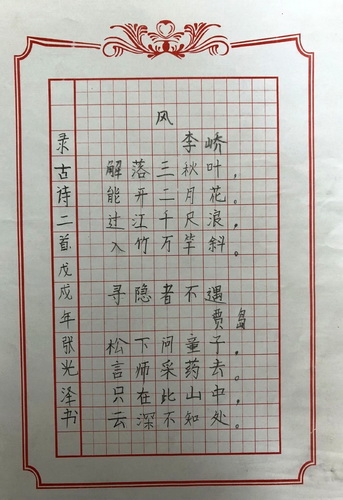 风
李峤
解落三秋叶，
能开二月花。
过江千尺浪，
入竹万竿斜。
寻隐者不遇
贾岛
松下问童子，
言师采药去。
只在此山中，
云深不知处。
录古诗二首戊戌年张光泽书